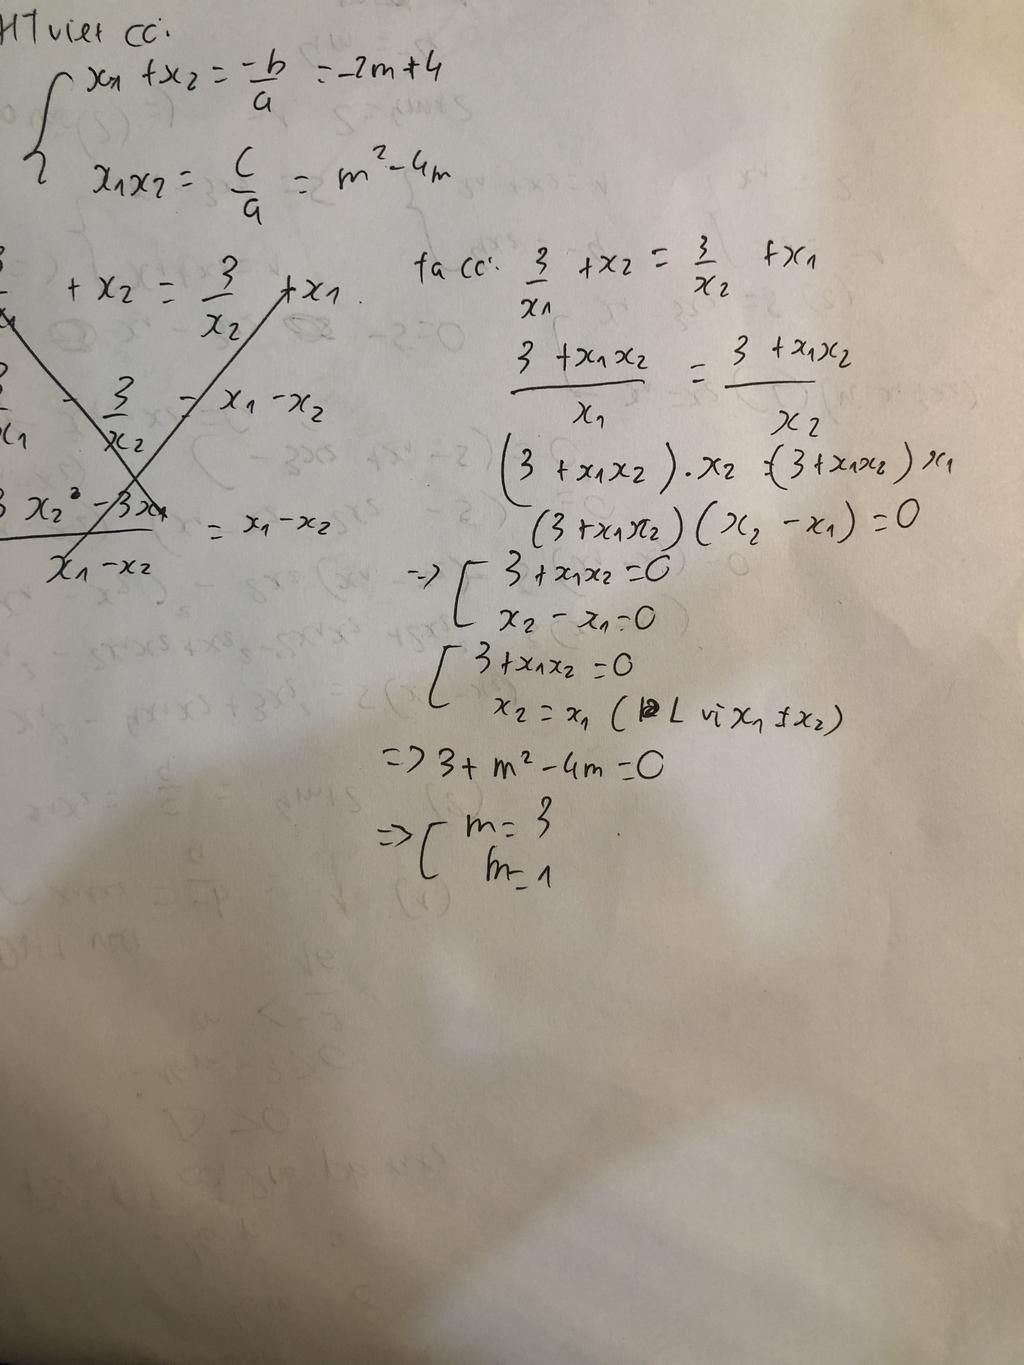 HT viet cc:
x1 + x2 = -b/a = -2m+4
x1x2 = c/a = m² - 4m
+ x2 = 3/x2 + x1
3/x1 - 3/x2 = x1 - x2
3x2² - 3x1/x1 - x2 = x1 - x2
ta cc: 3/x1 + x2 = 3/x2 + x1
3 + x1x2/x1 = 3 + x1x2/x2
(3 + x1x2).x2 = (3 + x1x2)x1
(3 + x1x2)(x2 - x1) = 0
=> [ 3 + x1x2 = 0
x2 - x1 = 0
[ 3 + x1x2 = 0
x2 = x1 (L vi x1 ≠ x2)
=> 3 + m² - 4m = 0
=> [ m = 3
m = 1